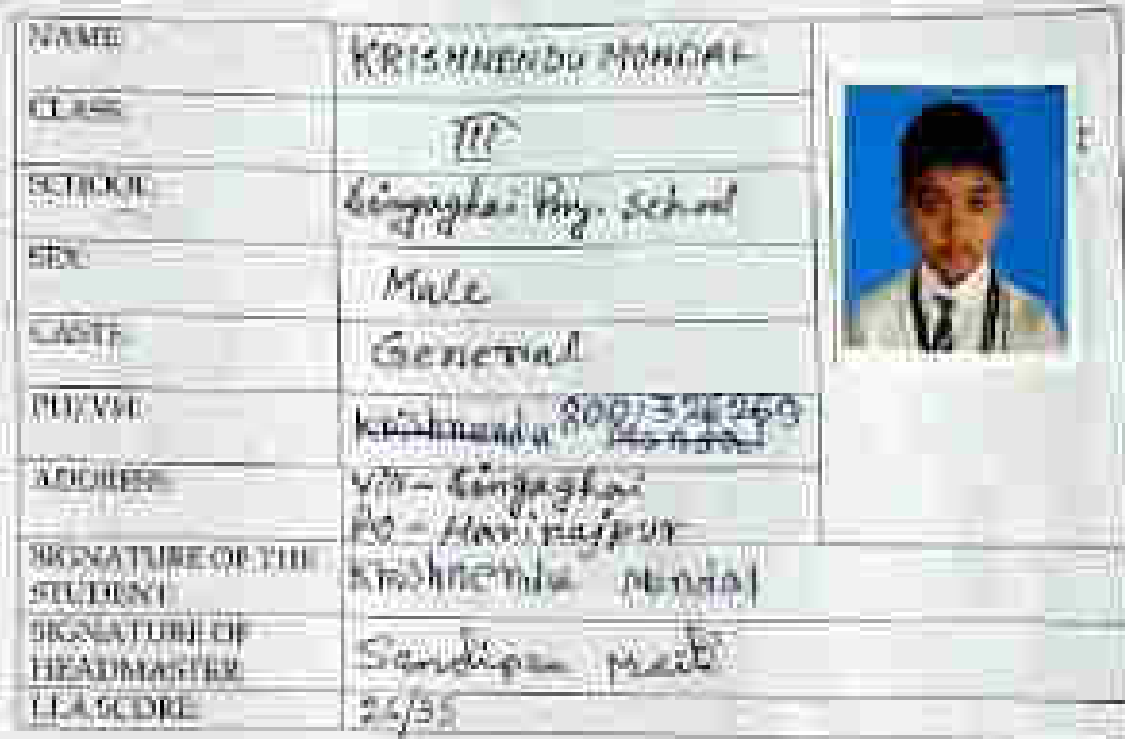 NAME: KRISHNENDU MONDAL
CLASS: III
SCHOOL: Singaghai Pry. School
SEX: Male
CASTE: General
Krishnendu
ADDRESS: Vill - Singaghai
PO - Harirajpur
SIGNATURE OF THE STUDENT: Krishnendu Mondal
SIGNATURE OF HEADMASTER: Sandipan Maiti
SCORE: